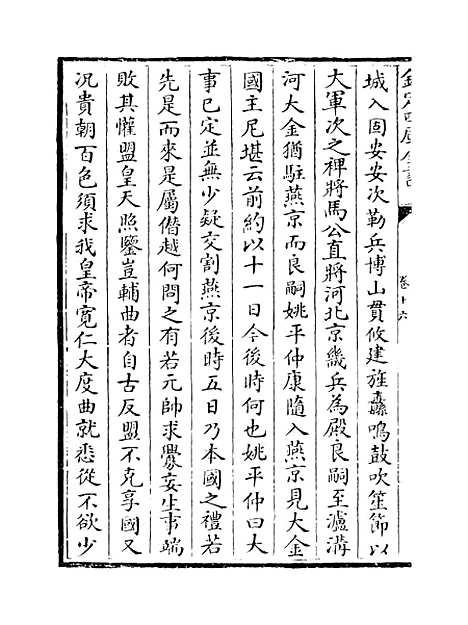 欽定四庫全書
卷十六
城入固安安次勒兵博山貫攸建旌纛鳴鼓吹笙節以
大軍次之裨將馬公直將河北京畿兵為殿良嗣至瀘溝
河大金猶駐燕京而良嗣姚平仲康隨入燕京見大金
國主尼堪云前約以十一日今後時何也姚平仲曰大
事已定並無少疑交割燕京後時五日乃本國之禮若
先是而來是屬僭越何問之有若元帥求釁妄生事端
敗其懽盟皇天照鑒豈輔曲者自古反盟不克享國又
况貴朝百色須求我皇帝寛仁大度曲就悉從不欲少